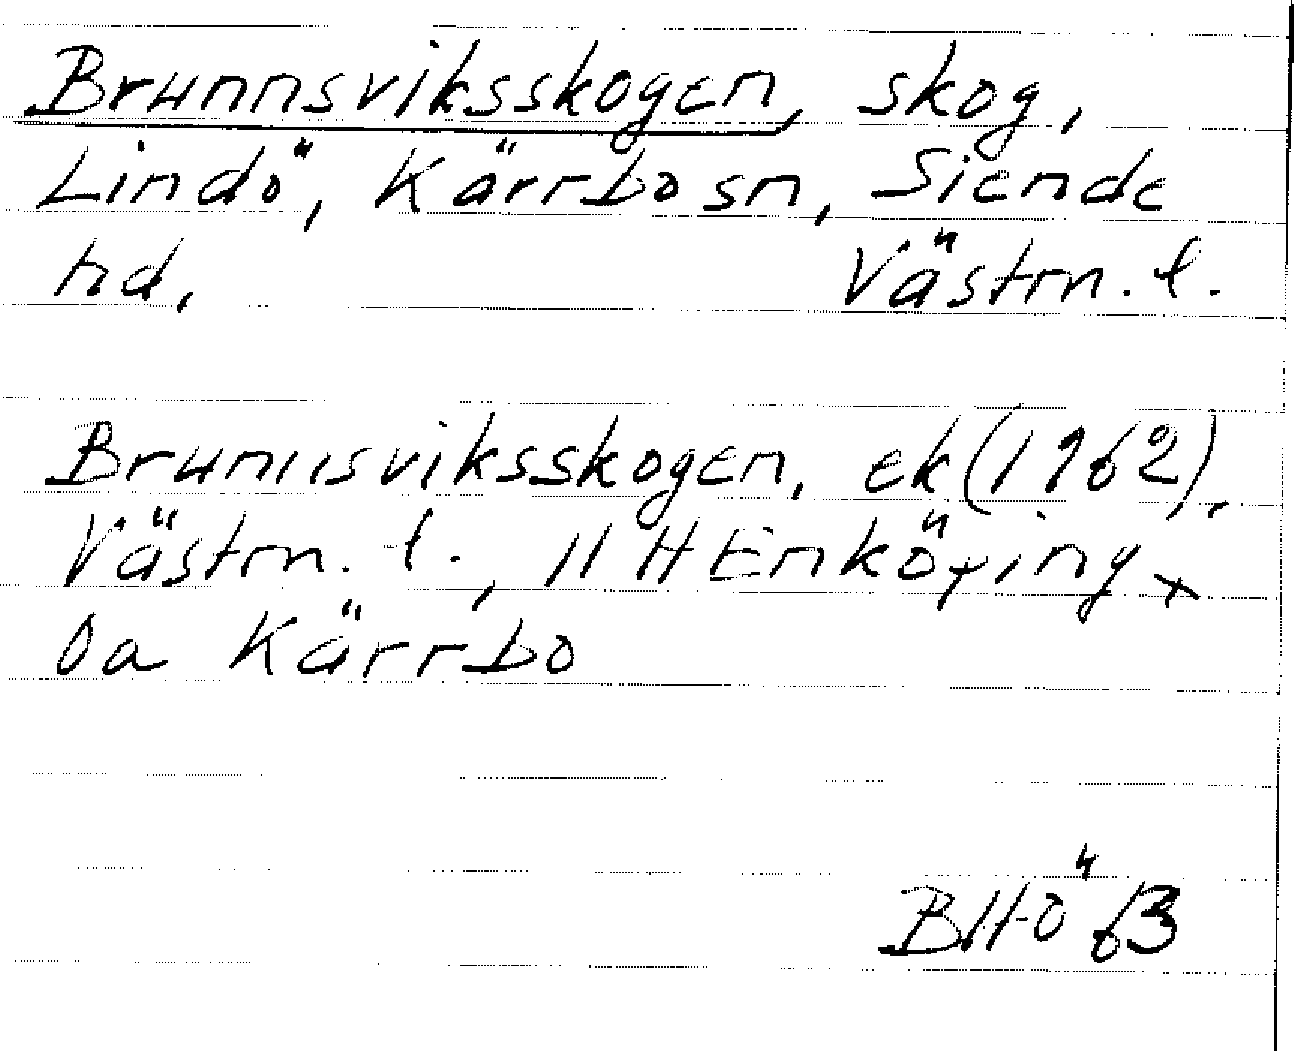 Brunnsviksskogen, skog,
Lindö, Kärrbo sn, Siende
hd, Västm. l.
Brunnsviksskogen, ek (1962),
Västm. l., 11 H Enköping
Oa Kärrbo
BHÖ 63